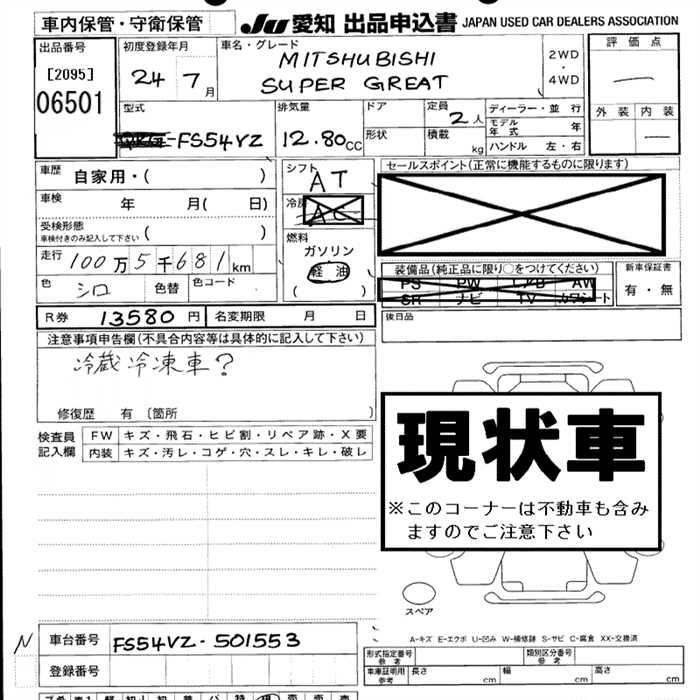 車内保管・守衛保管
JU 愛知 出品申込書 JAPAN USED CAR DEALERS ASSOCIATION
出品番号 初度登録年月 車名・グレード 評価点
[2095] 24 7月 MITSHUBISHI 2WD
・
06501 SUPER GREAT 4WD
型式 排気量 ドア 定員 2人 ディーラー・並行 外装 内装
-FS54VZ 12.80cc 形状 積載 kg モデル年式 年
ハンドル 左・右
車歴 自家用・( ) シフト AT セールスポイント(正常に機能するものに限ります)
車検 年 月( 日) 冷房 AC
受検形態
車検付きのみ記入して下さい ( ) 燃料
ガソリン
走行 100万5千681km 軽油 装備品(純正品に限り○をつけてください) 新車保証書
色 シロ 色替 色コード ( ) PS PW エアB AW 有・無
SR ナビ TV カワシート
R券 13580円 名変期限 月 日 後日品
注意事項申告欄(不具合内容等は具体的に記入して下さい)
冷蔵冷凍車?
修復歴 有 〔箇所 〕
検査員 FW キズ・飛石・ヒビ割・リペア跡・X要
記入欄 内装 キズ・汚レ・コゲ・穴・スレ・キレ・破レ
現状車
※このコーナーは不動車も含み
ますのでご注意下さい
スペア
A-キズ E-エクボ U-凹み W-補修跡 S-サビ C-腐食 XX-交換済
N 車台番号 FS54VZ-501553
登録番号
形式指定番号 参考 類別区分番号 参考
車庫証明用 参考 長さ cm 幅 cm 高さ cm